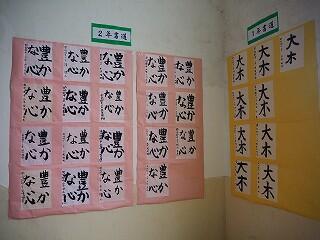 2年書道
1年書道
豊かな心
豊かな心
豊かな心
豊かな心
豊かな心
豊かな心
豊かな心
豊かな心
豊かな心
豊かな心
豊かな心
豊かな心
豊かな心
豊かな心
豊かな心
豊かな心
豊かな心
豊かな心
豊かな心
豊かな心
豊かな心
豊かな心
豊かな心
豊かな心
大木
大木
大木
大木
大木
大木
大木
大木
大木